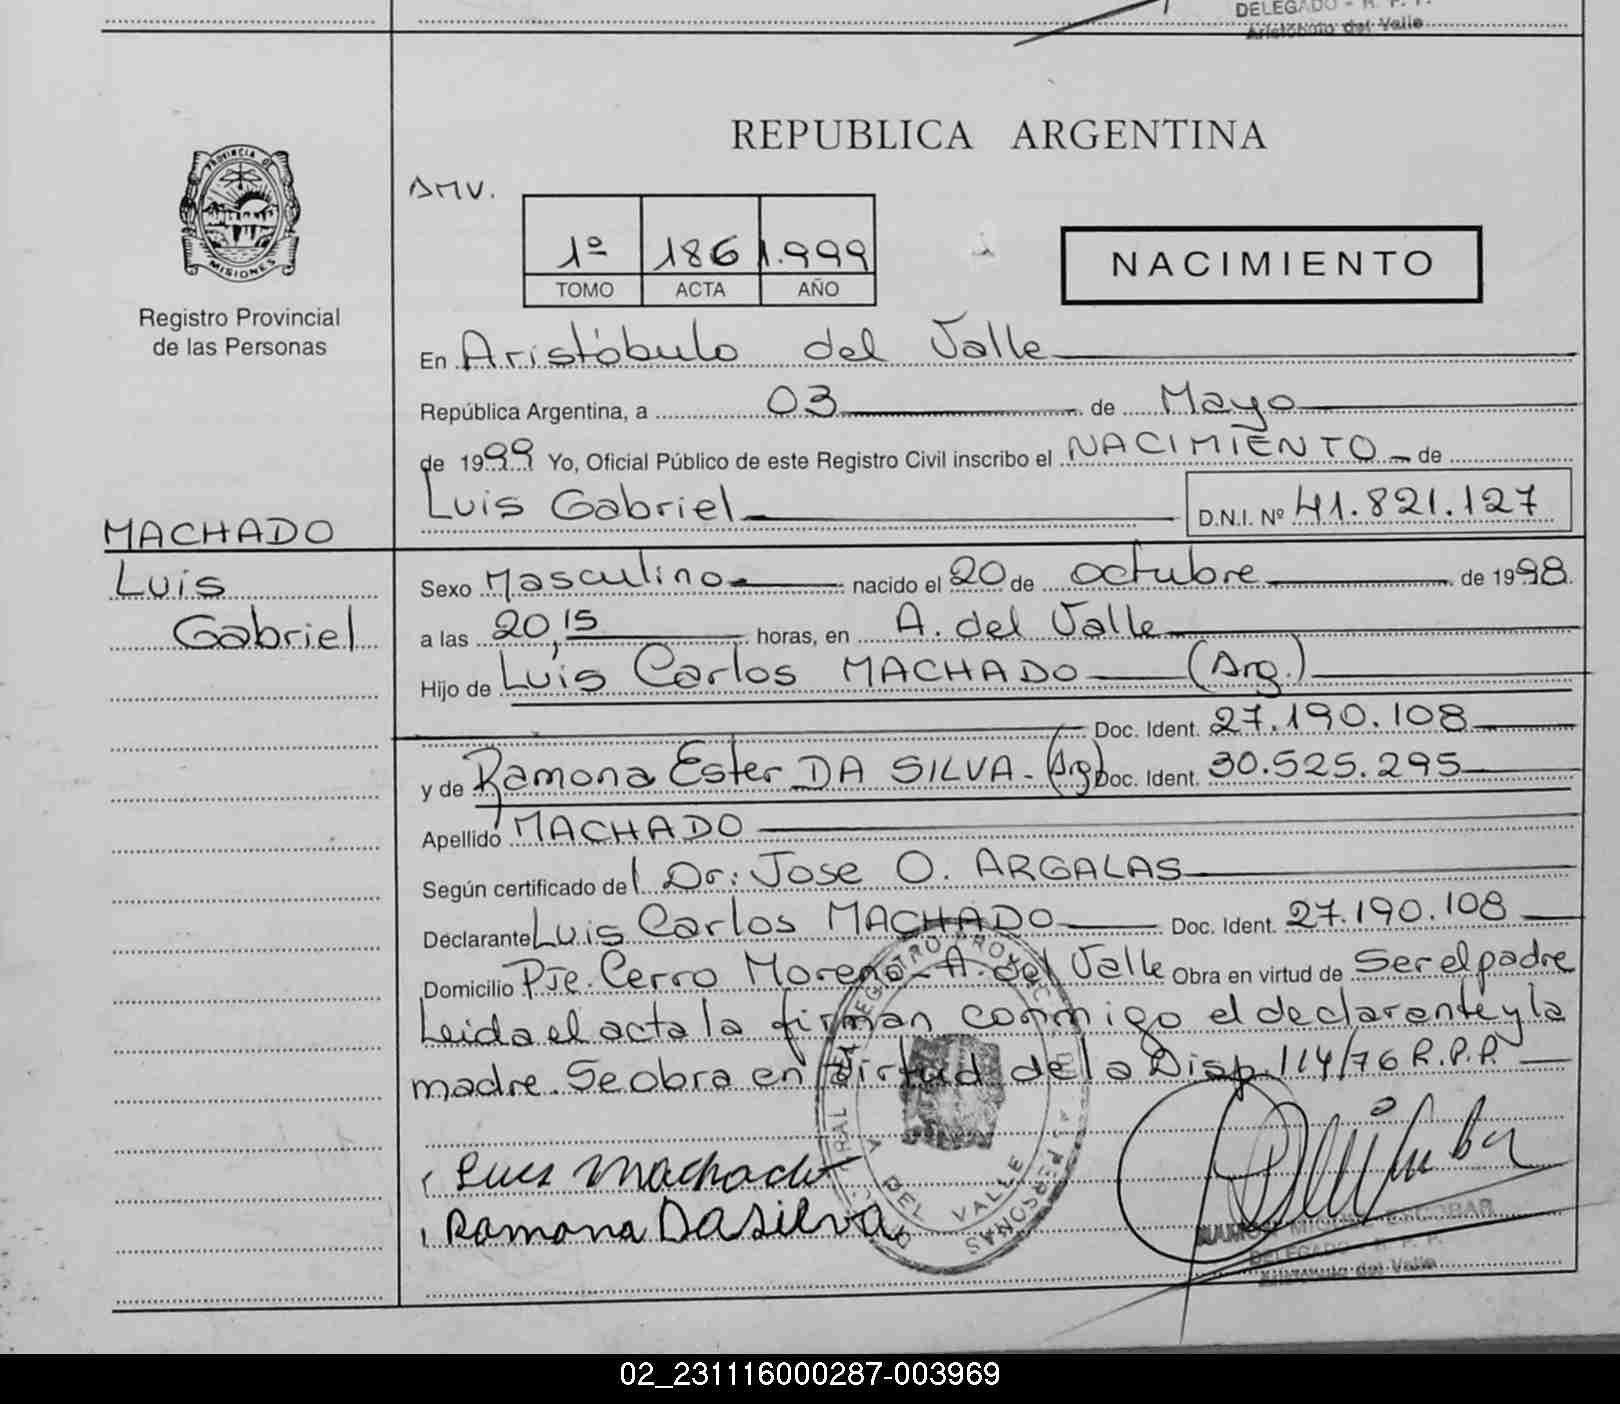 DELEGADO - R. P. P.
Aristóbulo del Valle
PROVINCIA DE
MISIONES
Registro Provincial
de las Personas
REPUBLICA ARGENTINA
AMV.
1º 186 1.999
TOMO ACTA AÑO
NACIMIENTO
En Aristóbulo del Valle
República Argentina, a 03 de Mayo
de 1999 Yo, Oficial Público de este Registro Civil inscribo el NACIMIENTO de
Luis Gabriel D.N.I. Nº 41.821.127
MACHADO
Luis
Gabriel
Sexo Masculino nacido el 20 de octubre de 1998.
a las 20,15 horas, en A. del Valle
Hijo de Luis Carlos MACHADO (Arg.)
Doc. Ident. 27.190.108
y de Ramona Ester DA SILVA. (Arg) Doc. Ident. 30.525.295
Apellido MACHADO
Según certificado del Dr: Jose O. ARGALAS
Declarante Luis Carlos MACHADO Doc. Ident. 27.190.108
Domicilio Pje. Cerro Moreno - A. del Valle Obra en virtud de Ser el padre
Leida el acta la firman conmigo el declarante y la
madre. Se obra en virtud de la Disp. 114/76 R.P.P.
Luis Machado
Ramona Da Silva
DEL VALLE
PERSONAS
RAMON MIGUEL ESCOBAR
DELEGADO - R. P. P.
Aristóbulo del Valle
02_231116000287-003969